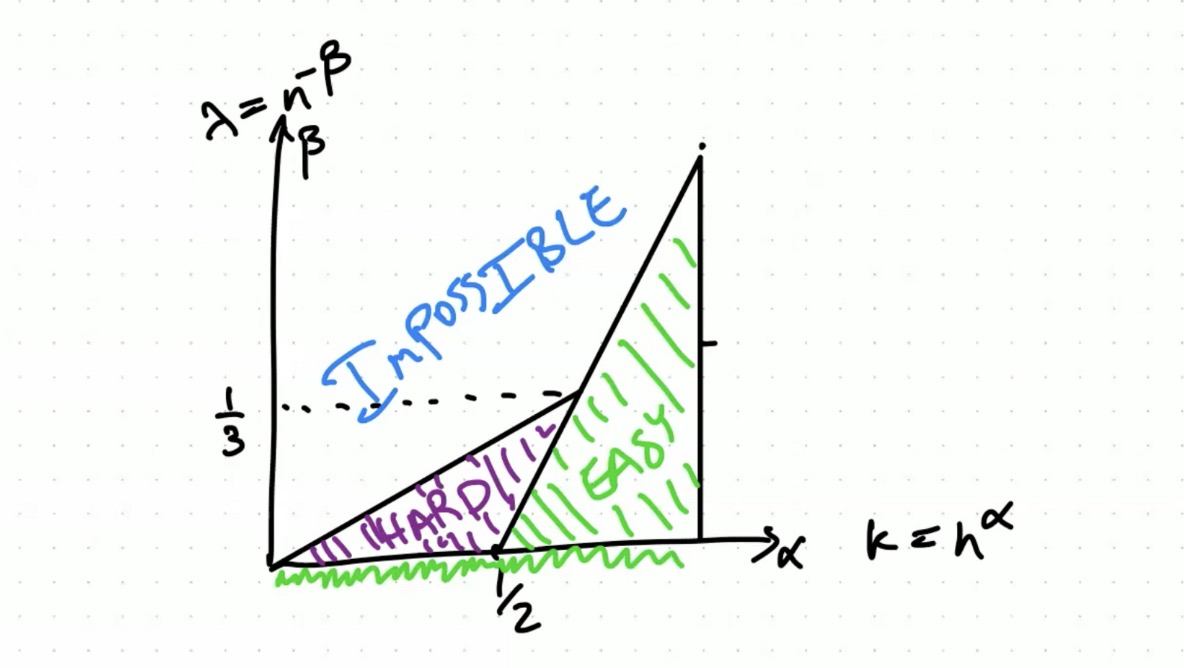 λ = n^-β
β
ImPOSSIBLE
1/3
HARD
EASY
α
k = n^α
1/2